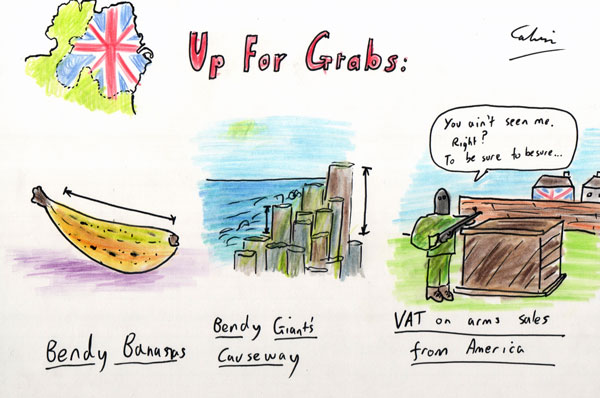 Up For Grabs:
You ain't seen me.
Right?
To be sure to be sure...
Bendy Bananas
Bendy Giant's
Causeway
VAT on arms sales
from America